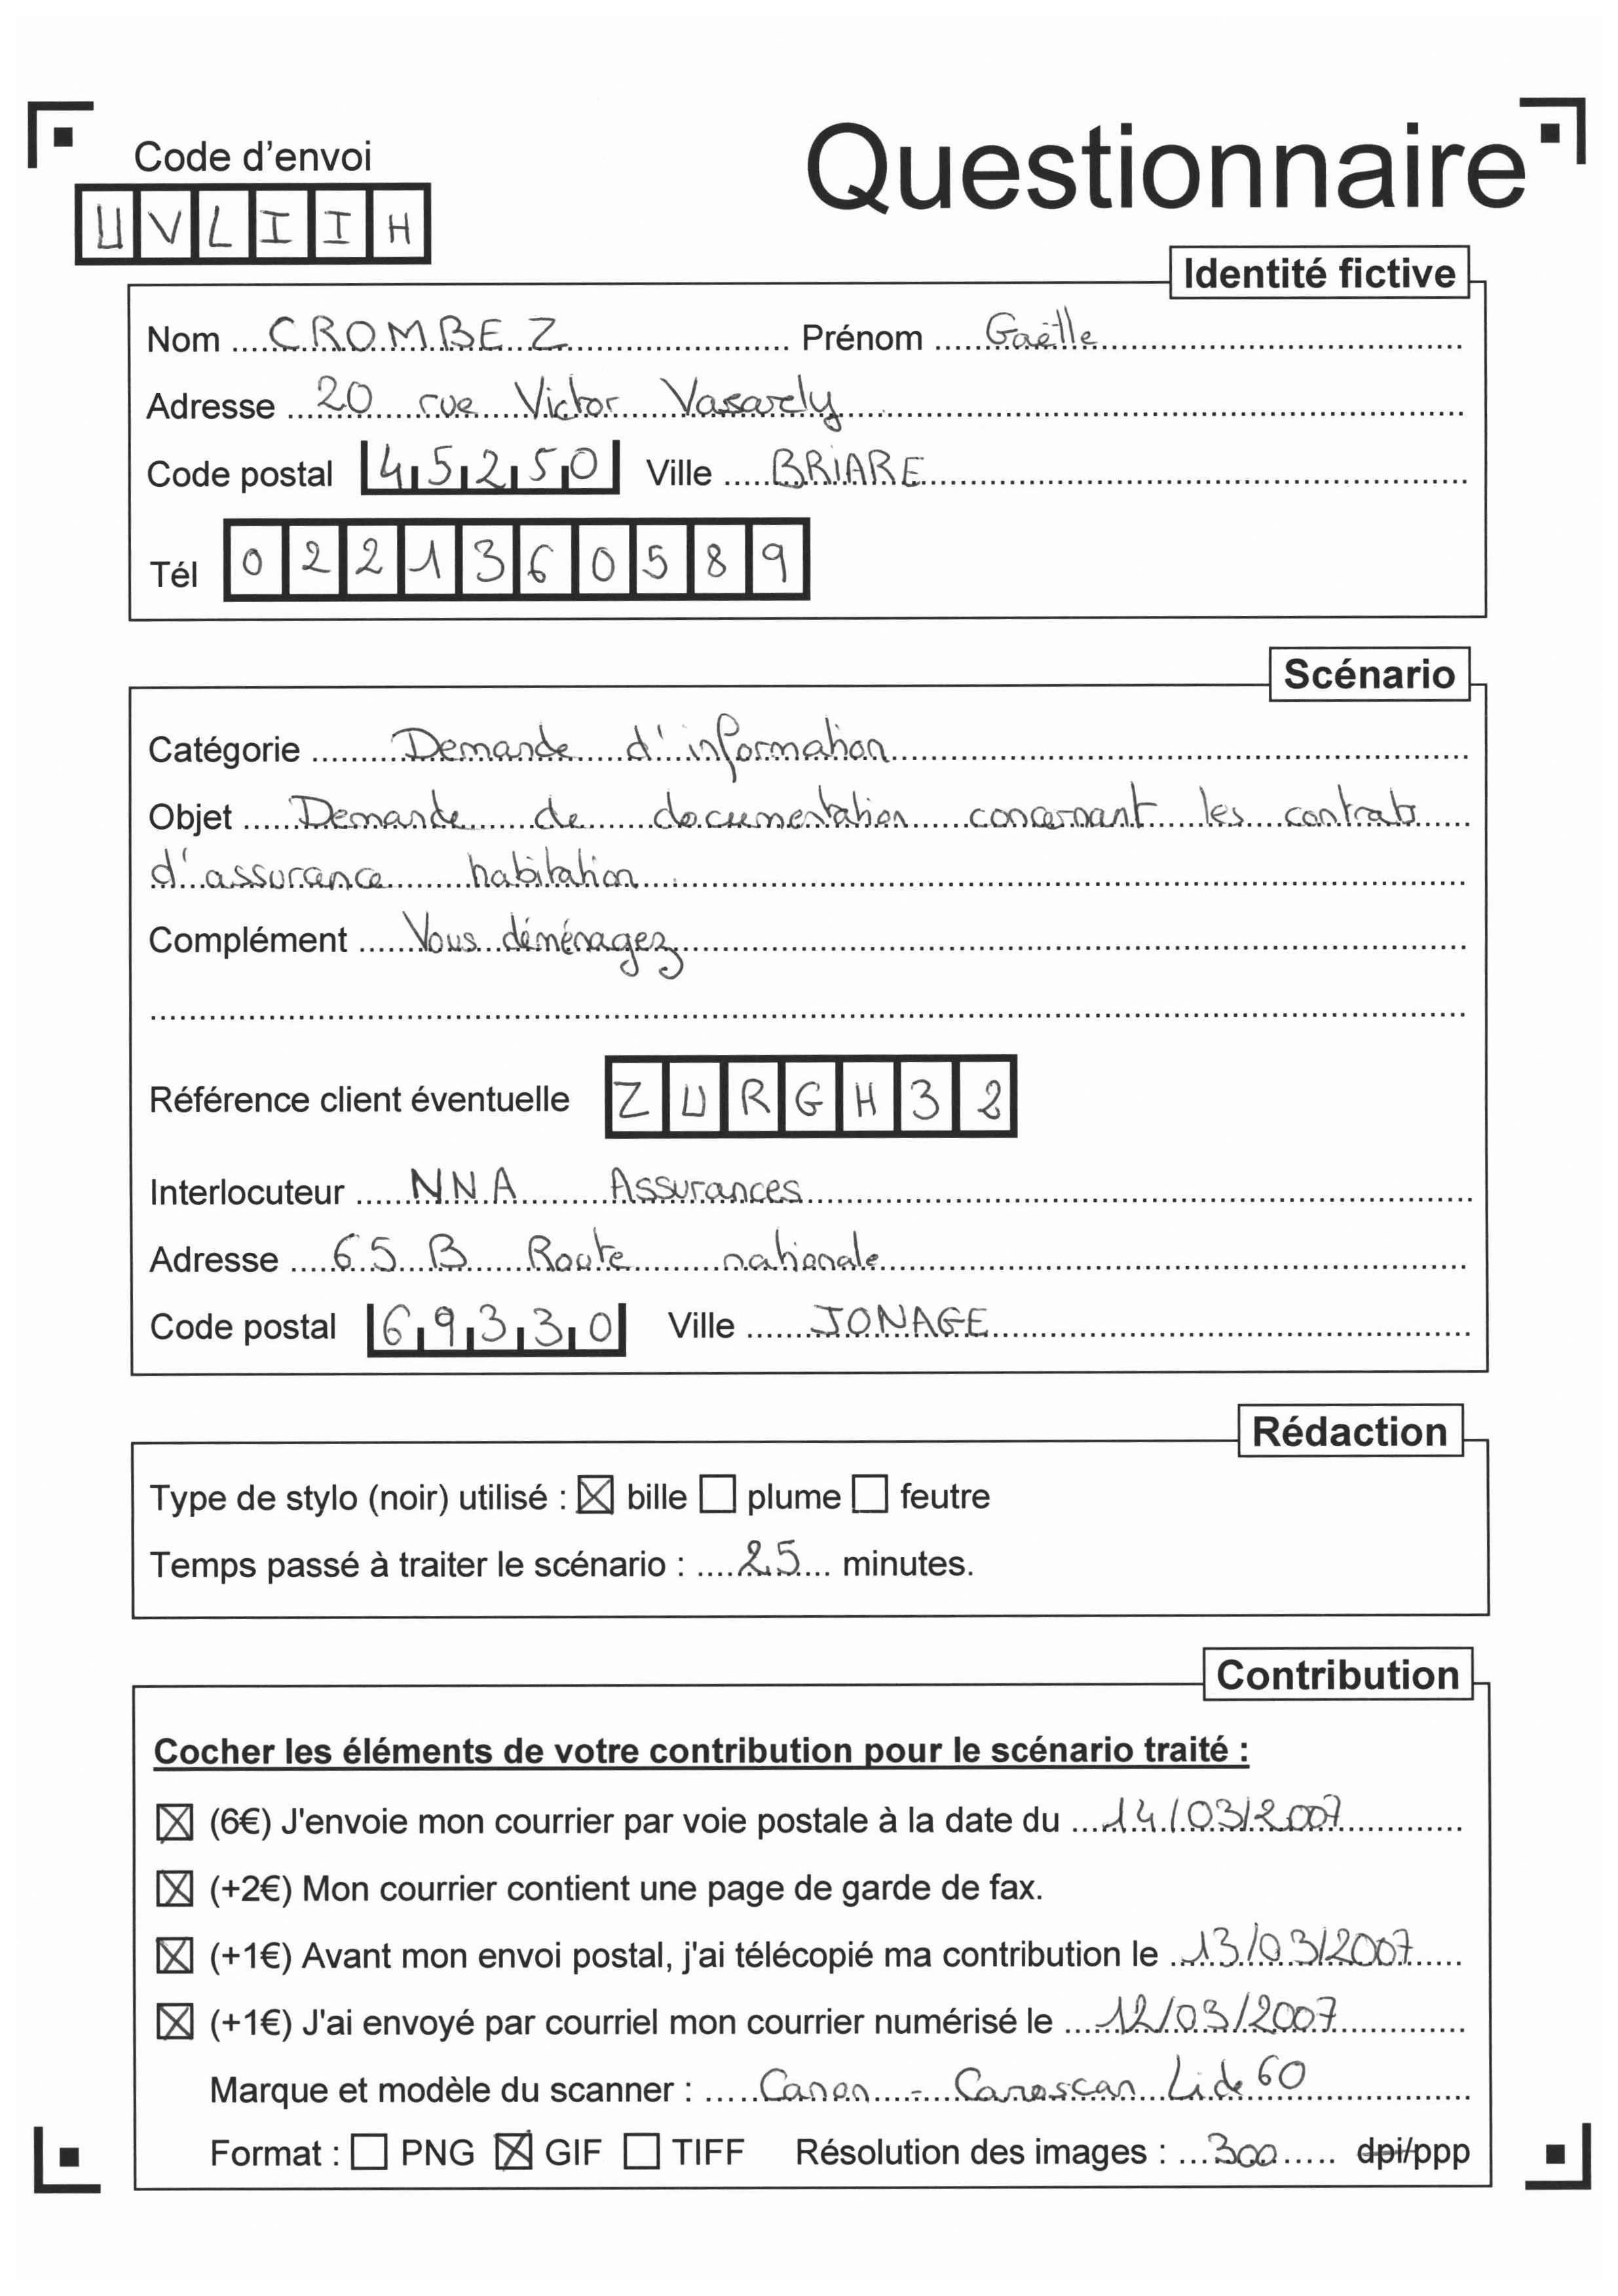 Code d'envoi
Questionnaire
UVLIIH
Identité fictive
Nom CROMBEZ Prénom Gaëlle
Adresse 20 rue Victor Vasarely
Code postal 45250 Ville BRIARE
Tél 0221360589
Scénario
Catégorie Demande d'information
Objet Demande de documentation concernant les contrats
d'assurance habitation
Complément Vous déménagez
Référence client éventuelle ZURGH32
Interlocuteur NNA Assurances
Adresse 65 B Route nationale
Code postal 69330 Ville JONAGE
Rédaction
Type de stylo (noir) utilisé : ☒ bille ☐ plume ☐ feutre
Temps passé à traiter le scénario : 25 minutes.
Contribution
Cocher les éléments de votre contribution pour le scénario traité :
☒ (6€) J'envoie mon courrier par voie postale à la date du 14/03/2007
☒ (+2€) Mon courrier contient une page de garde de fax.
☒ (+1€) Avant mon envoi postal, j'ai télécopié ma contribution le 13/03/2007
☒ (+1€) J'ai envoyé par courriel mon courrier numérisé le 12/03/2007
Marque et modèle du scanner : Canon - Canoscan Lide 60
Format : ☐ PNG ☒ GIF ☐ TIFF Résolution des images : 300 dpi/ppp